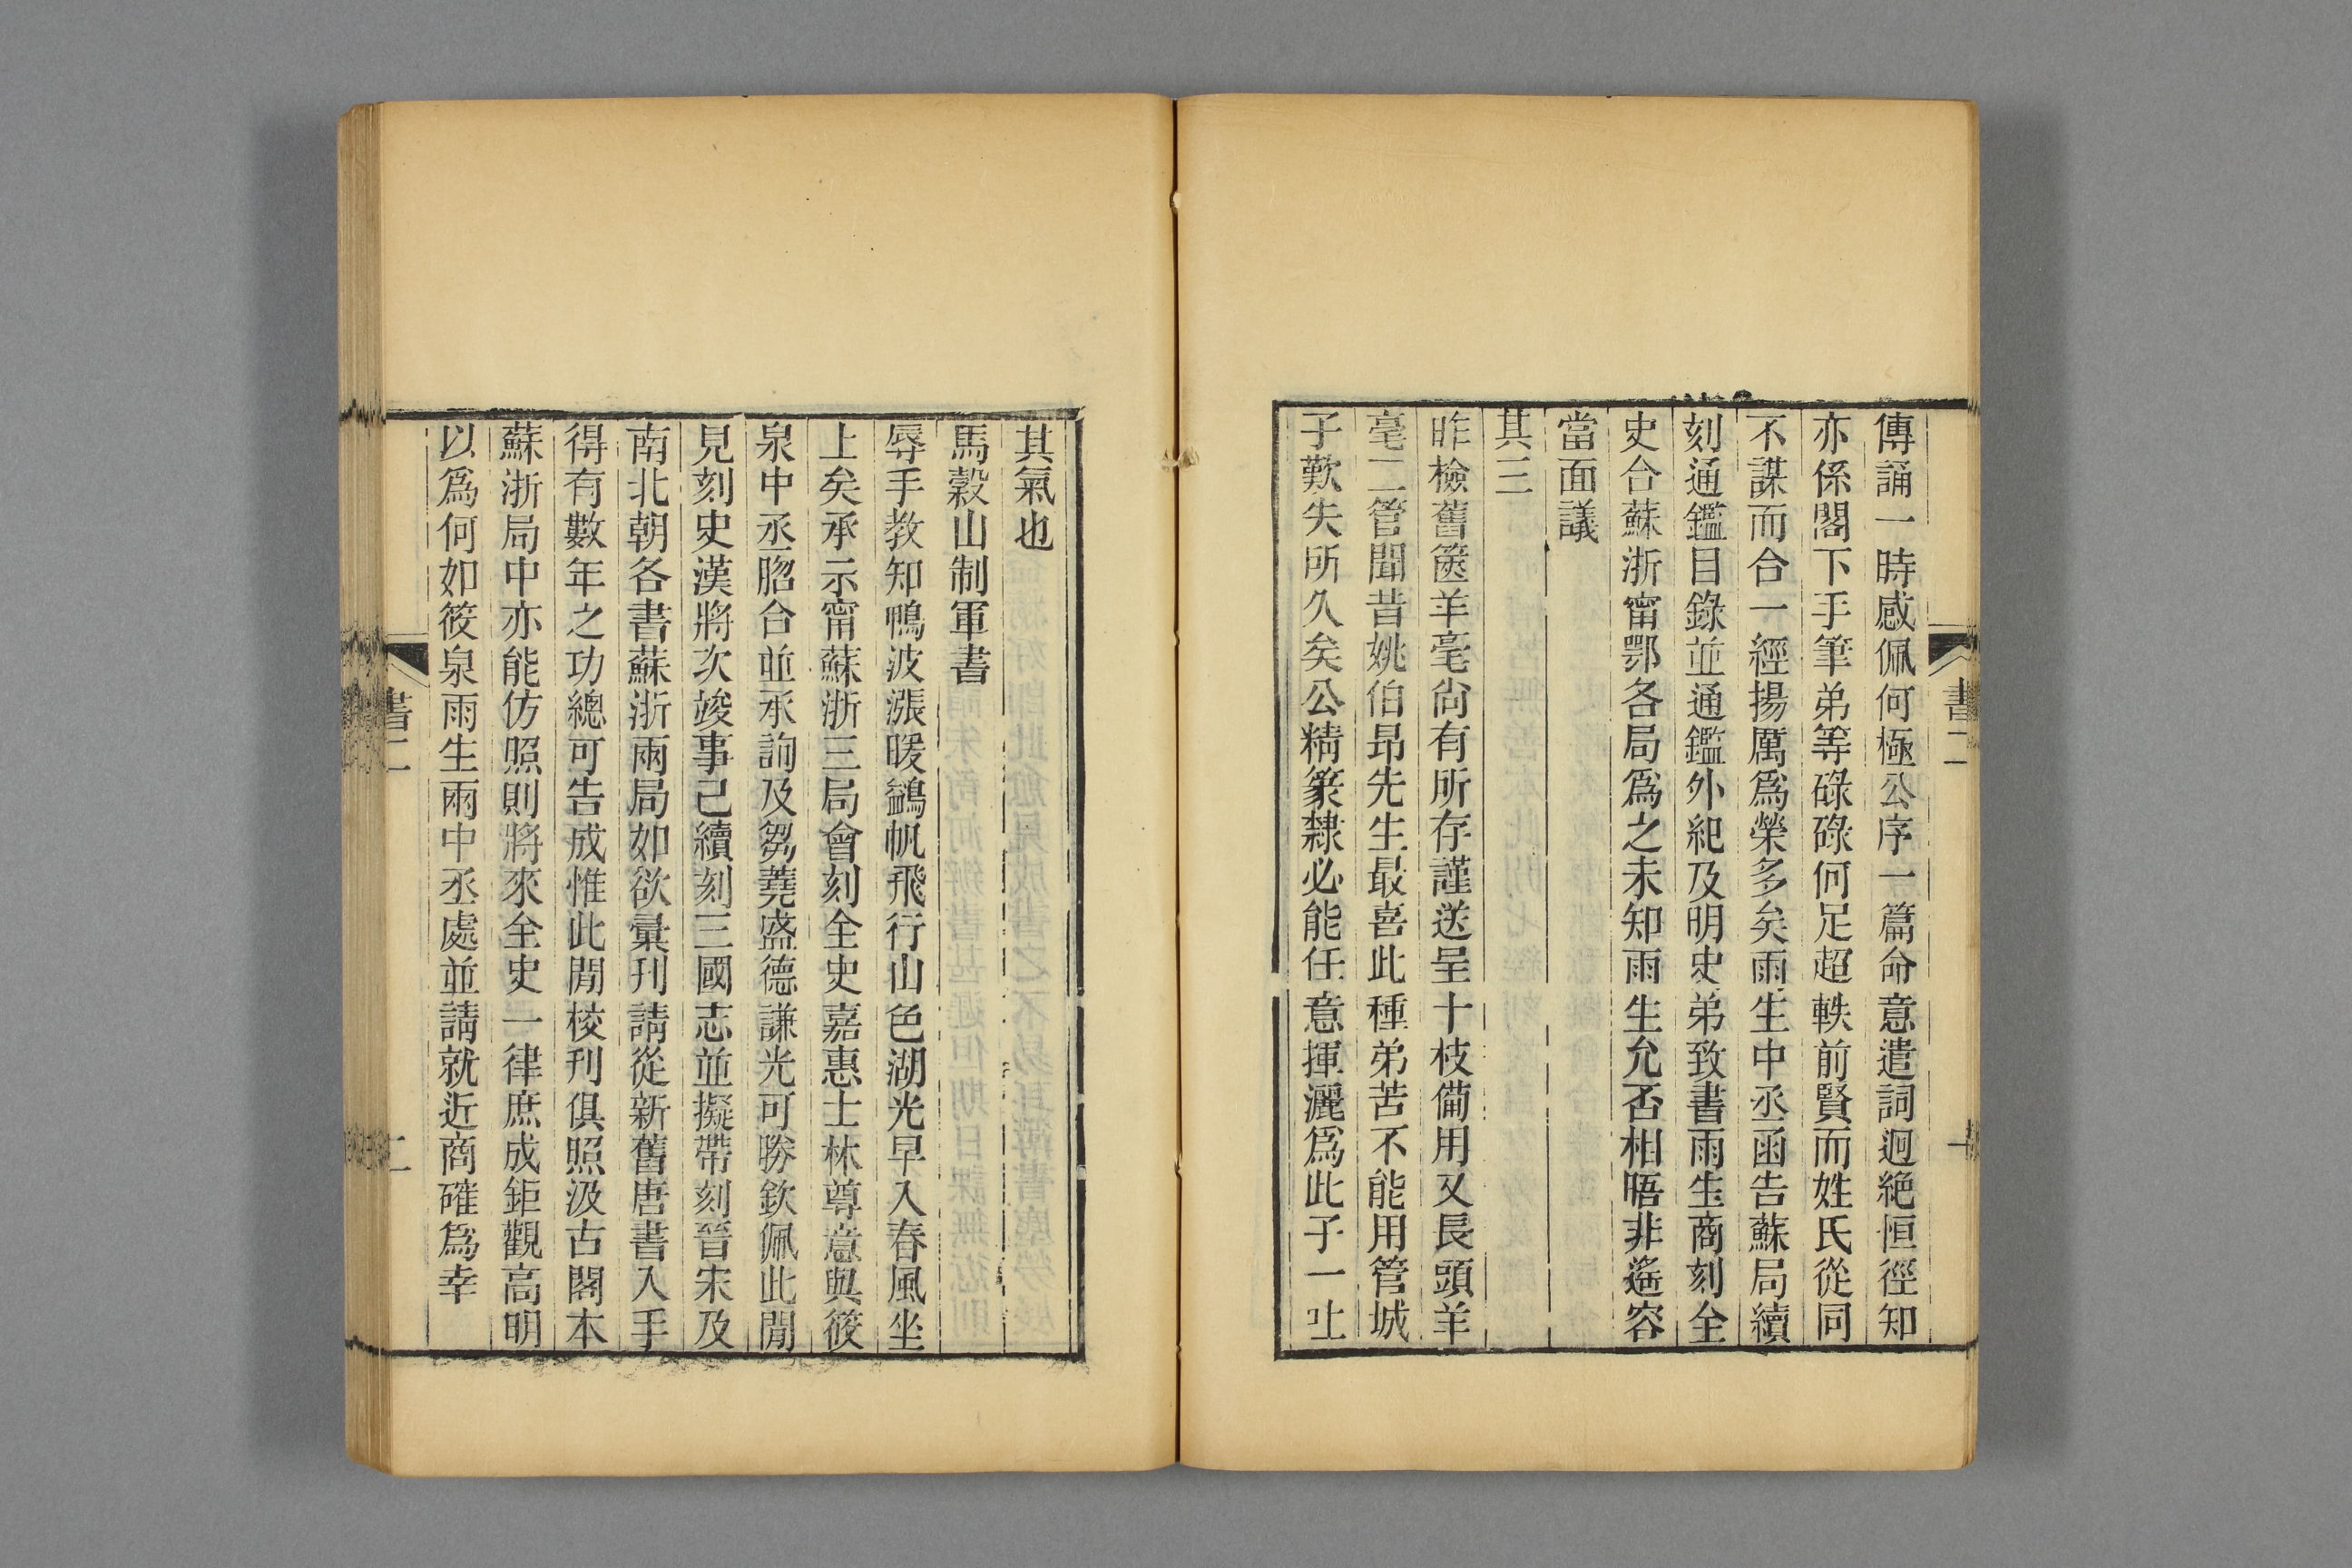 傳誦一時感佩何極公序一篇命意遣詞迥絕恒徑知
亦係閣下手筆弟等碌碌何足超軼前賢而姓氏從同
不謀而合一經揚厲爲榮多矣雨生中丞函告蘇局續
刻通鑑目錄並通鑑外紀及明史弟致書雨生商刻全
史合蘇浙甯鄂各局爲之未知雨生允否相晤非遙容
當面議
其三
昨檢舊篋羊毫尙有所存謹送呈十枝備用又長頭羊
毫二管聞昔姚伯昂先生最喜此種弟苦不能用管城
子歎失所久矣公精篆隸必能任意揮灑爲此子一吐
書二
一
其氣也
馬穀山制軍書
辱手教知鴨波漲暖鷁帆飛行山色湖光早入春風坐
上矣承示甯蘇浙三局會刻全史嘉惠士林尊意與筱
泉中丞脗合並承詢及芻蕘盛德謙光可勝欽佩此閒
見刻史漢將次竣事已續刻三國志並擬帶刻晉宋及
南北朝各書蘇浙兩局如欲彙刊請從新舊唐書入手
得有數年之功總可告成惟此閒校刊俱照汲古閣本
蘇浙局中亦能仿照則將來全史一律庶成鉅觀高明
以爲何如筱泉雨生兩中丞處並請就近商確爲幸
書二
二